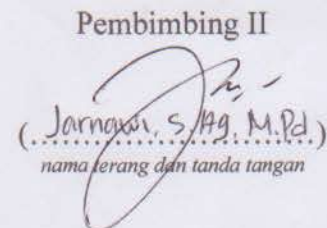 Pembimbing II
(Jarnawi, S.Ag, M.Pd)
nama terang dan tanda tangan